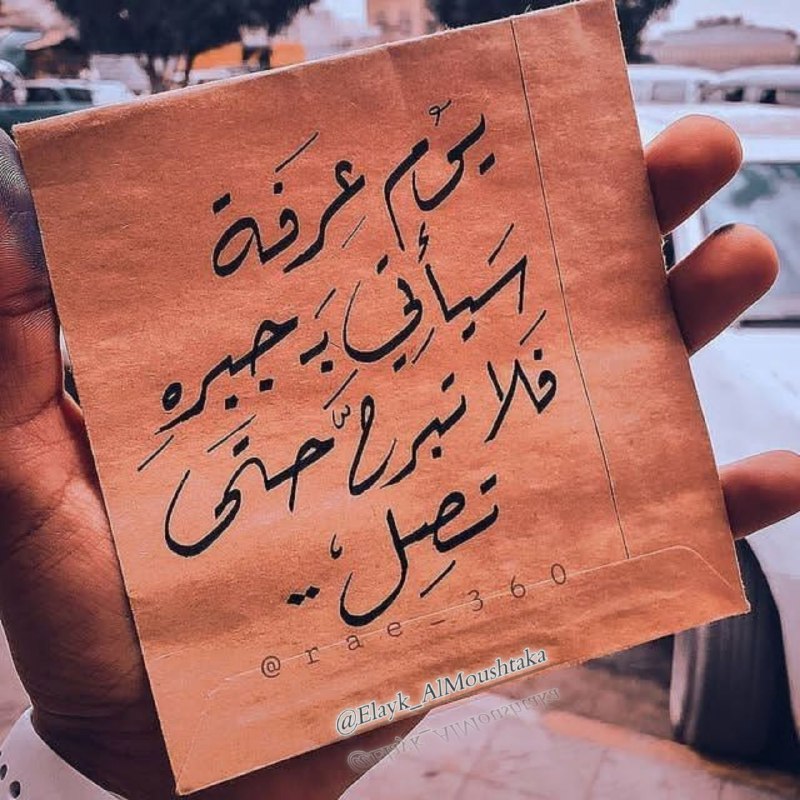 يَوْم عِرفَة
سَيأتي بَـ جبرهِ
فَلا تبرح حتّى
تصِل ..
@rae_360
@Elayk_AlMoushtaka